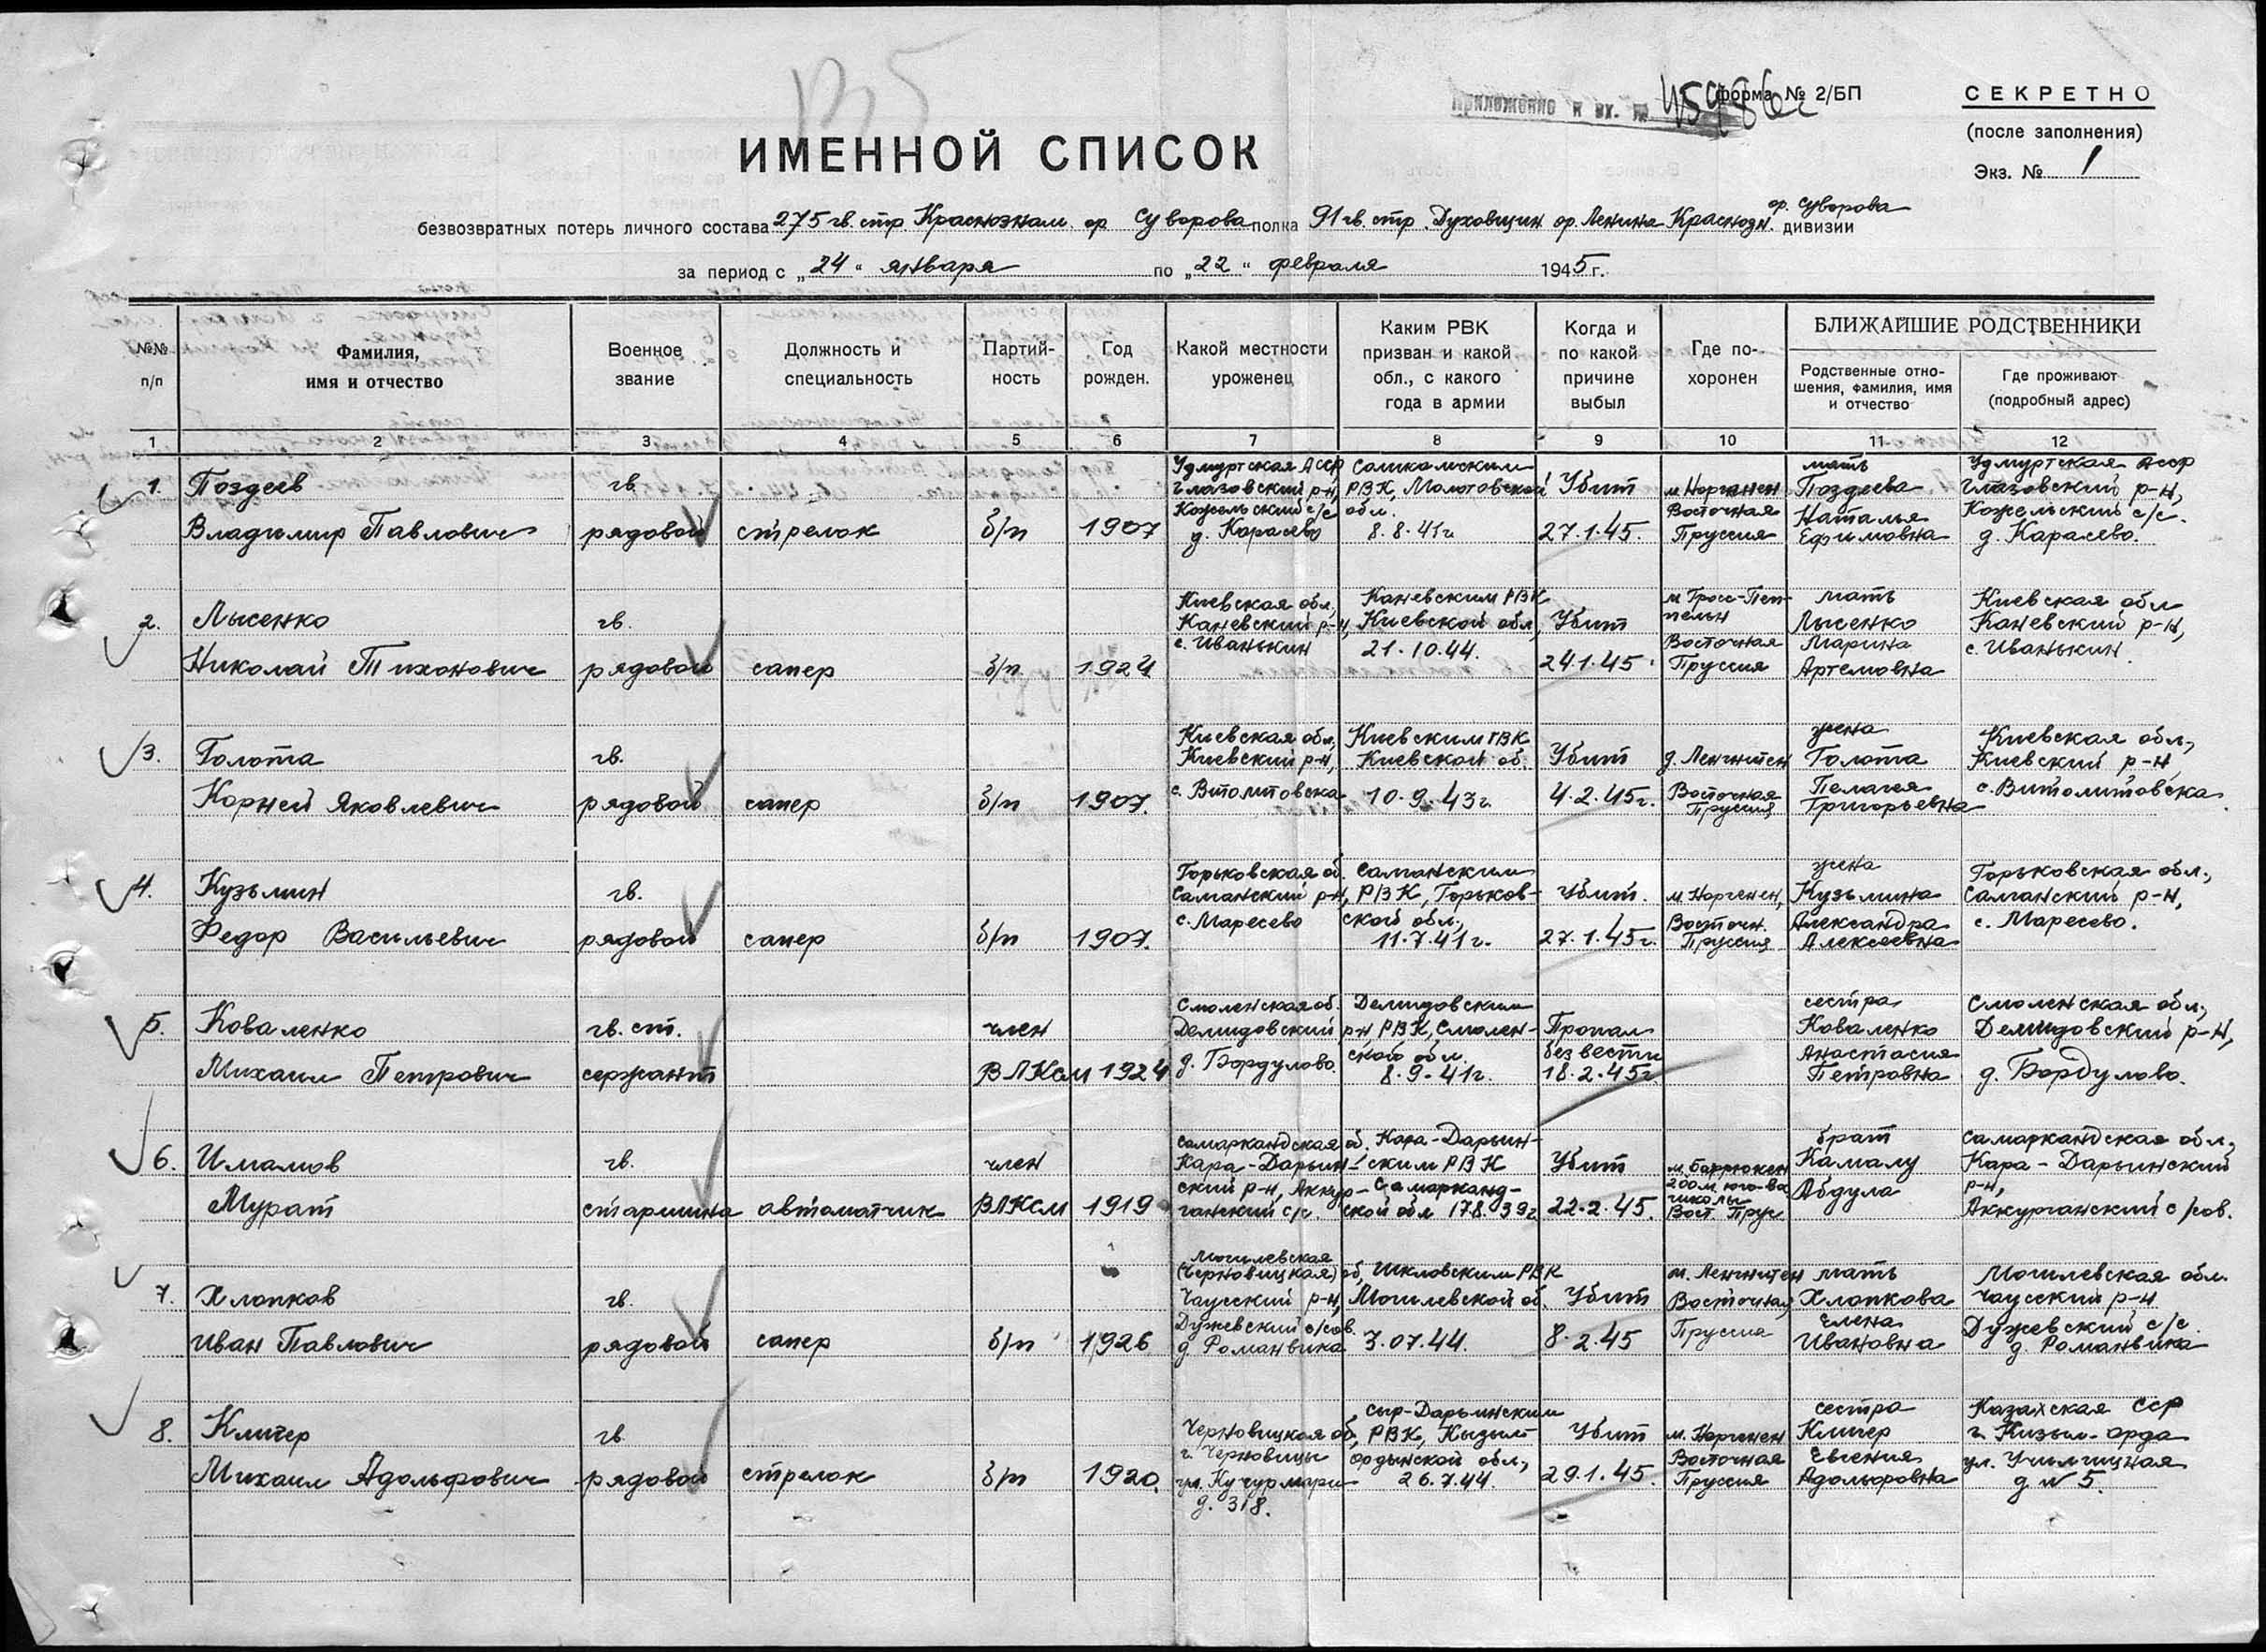 Приложение к вх. №
форма № 2/БП
СЕКРЕТНО
(после заполнения)
Экз. № 1
ИМЕННОЙ СПИСОК
безвозвратных потерь личного состава 275 гв. стр. Краснознам. ор Суворова полка 91 гв. стр. Духовщин ор. Ленина Краснозн. ор. Суворова дивизии
за период с „24“ января по „22“ февраля 1945 г.
№№ п/п
Фамилия, имя и отчество
Военное звание
Должность и специальность
Партий-ность
Год рожден.
Какой местности уроженец
Каким РВК призван и какой обл., с какого года в армии
Когда и по какой причине выбыл
Где по-хоронен
БЛИЖАЙШИЕ РОДСТВЕННИКИ
Родственные отно-шения, фамилия, имя и отчество
Где проживают (подробный адрес)
1 2 3 4 5 6 7 8 9 10 11 12
1. Поздеев Владимир Павлович
гв. рядовой
стрелок
б/п
1907
Удмуртская АССР Глазовский р-н, Кожельский с/с д. Карасево
Соликамским РВК, Молотовской обл. 8.8.41г
Убит 27.1.45.
м. Норгенен Восточная Пруссия
мать Поздеева Наталья Ефимовна
Удмуртская АССР Глазовский р-н, Кожельский с/с. д. Карасево.
2. Лысенко Николай Тихонович
гв. рядовой
сапер
б/п
1924
Киевская обл, Каневский р-н, с. Иванькин
Каневским РВК Киевской обл, 21.10.44.
Убит 24.1.45.
м Гросс-Пеп-пельн Восточная Пруссия
мать Лысенко Марина Артемовна
Киевская обл Каневский р-н, с. Иванькин.
3. Голота Корней Яковлевич
гв. рядовой
сапер
б/п
1907.
Киевская обл, Киевский р-н, с. Втолитовска
Киевским РВК Киевской об. 10.9.43г.
Убит 4.2.45г.
д. Ленгнитен Восточная Пруссия
жена Голота Пелагея Григорьевна
Киевская обл, Киевский р-н с. Витолитовска
4. Кузьмин Федор Васильевич
гв. рядовой
сапер
б/п
1907.
Горьковская об. Саманский р-н, с. Маресево
Саманским РВК, Горьков-ской обл, 11.7.41г.
Убит. 27.1.45г.
м. Норгенен, Восточн. Пруссия
жена Кузьмина Александра Алексеевна
Горьковская обл., Саманский р-н, с. Маресево.
5. Коваленко Михаил Петрович
гв. ст. сержант
член ВЛКСМ
1924
Смоленская об. Демидовский р-н, д. Бордулово
Демидовским РВК, Смолен-ской обл. 8.9.41г.
Пропал без вести 18.2.45г
сестра Коваленко Анастасия Петровна
Смоленская обл, Демидовский р-н, д. Бордулово.
6. Имамов Мурат
гв. старшина
автоматчик
член ВЛКСМ
1919
Самаркандская об. Кара-Дарьин-ский р-н, Аккур-ганский с/с.
Кара-Дарьин-ским РВК Самарканд-ской обл 17.8.39г
Убит 22.2.45.
200 м. юго-во школы Вост. Прус
брат Камалу Абдула
Самаркандская обл. Кара-Дарьинский р-н, Аккурганский с/сов.
7. Хлопков Иван Павлович
гв. рядовой
сапер
б/п
1926
Могилевская (Черновицкая) об, Чаусский р-н, Дужевский с/сов. д Романвика
Шкловским РВК Могилевской об. 3.07.44.
Убит 8.2.45
м. Ленгнитен Восточная Пруссия
мать Хлопкова Елена Ивановна
Могилевская обл. Чаусский р-н Дужевский с/с. д. Романвика
8. Клигер Михаил Адольфович
гв рядовой
стрелок
б/п
1920.
Черновицкая об, г. Черновицы ул. Кучурмари д. 318.
Сыр-Дарьинским РВК, Кызыл ордынской обл, 26.7.44.
Убит 29.1.45.
м. Норгенен Восточная Пруссия
сестра Клигер Евгения Адольфовна
Казахская ССР г. Кизыл-орда ул. Училищная д № 5.